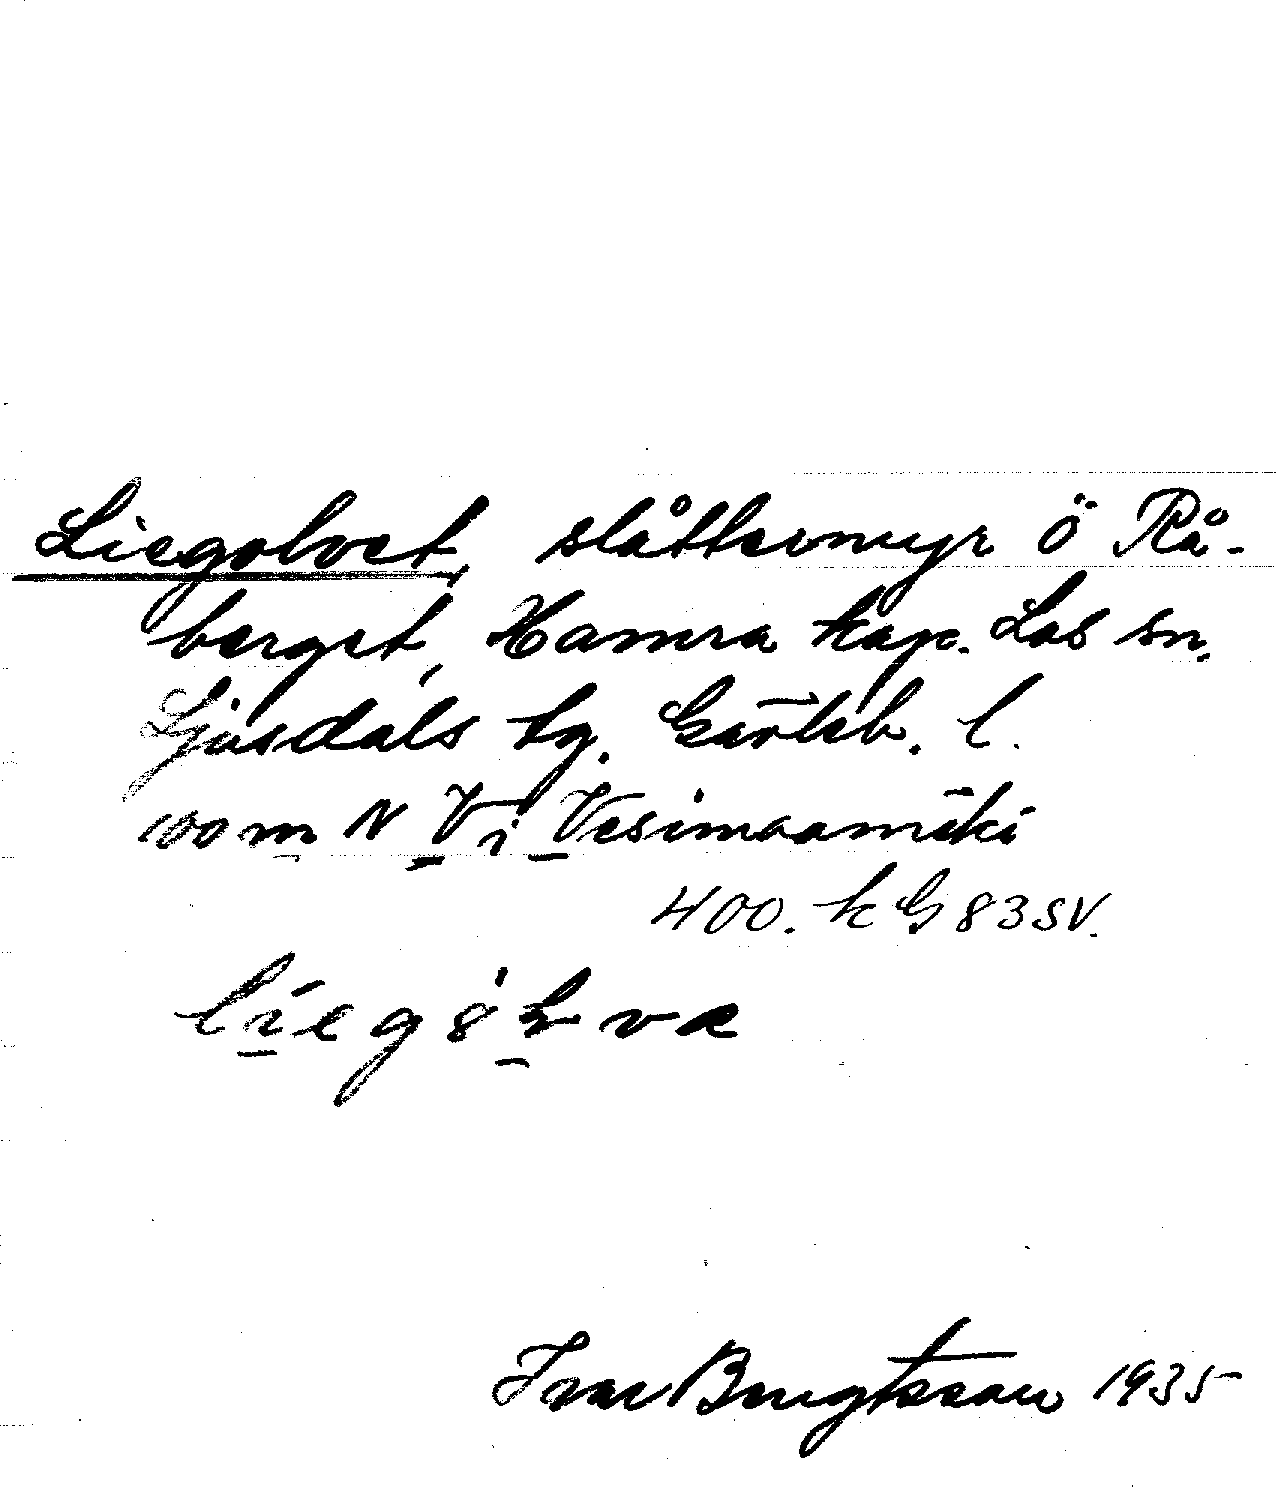 Liegolvet, slåttermyr Ö Rå-
berget, Hamra kap. Los sn.
Ljusdals tg. Gävleb. l.
100 m N V i Vesimaamäki
400. k G 83 SV.
Ivar Bengtsson 1935